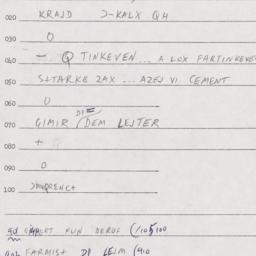 020 KRAJD J-KALX Q4
030 O
040 — Q TINKEVEN... A LOX FARTINKEVE
050 SLTARKE ZAX ... AZEJ VI CEMENT
060 O
070 GIMIR / DEM LEJTER
080 +
090 O
100
FUN DERUF (/105/100
FARMIST DI LEJM (910